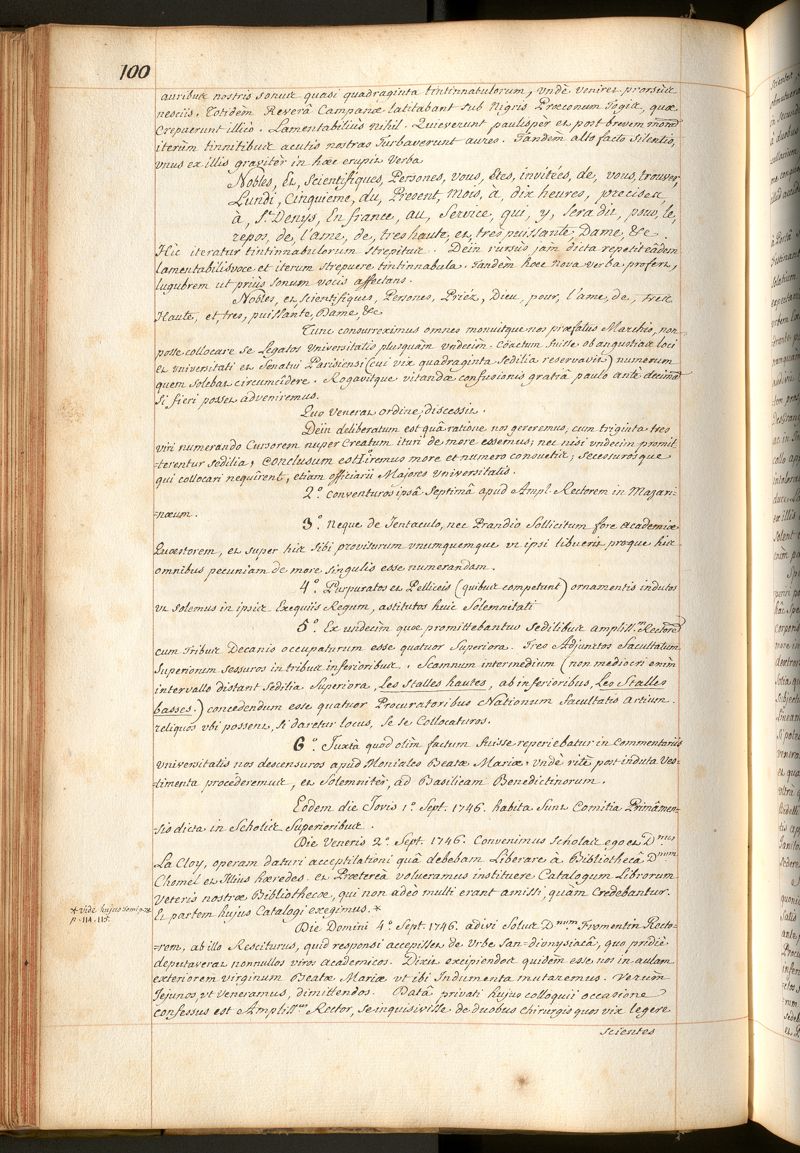 100
auribus nostris sonus quasi quadraginta tintinnabulorum, undè veniret prorsus
nesciis. Totidem Reverâ Campanæ latitabant sub Nigris Præconum Togis, quæ
Crepuerunt illico. Lamentabiliùs nihil. Quieverunt paulisper et post brevem mom̄
iterùm tinnitibus acutis nostras Turbaverunt aures. Tandem alto facto Silentio,
unus ex illis graviter in hæc erupit Verba
Nobles, Et, Scientifiques, Persones, vous, êtes, invitées, de, vous, trouver,
Lundi, Cinquieme, du, Present, Mois, à, dix heures, precises,
à, St. Denys, En france, au, Service, qui, y, sera dit, pour, le,
repos, de, l'ame, de, tres haute, et, tres puissante Dame, &c.
Hic iteratur tintinnabulorum Strepitus. Dein rursùs jam dicta repetit eâdem
lamentabilis voce et iterum strepuere tintinnabula. Tandem hæc nova verba profert,
lugubrem ut priùs sonum vocis affectans.
Nobles, et, Scientifiques, Persones, Priéz, Dieu, pour, l'ame, de, tres
Haute, et, tres, puissante, Dame, &c
Tunc consurreximus omnes monuitque nos præfatus Marchio, non
posse collocare se Legatos Universitatis plusquàm undecim. Coactum fuisse ob angustias loci
et universitati et Senatui Parisiensi (cui vix quadraginta Sedilia reservavit) numerum
quem solebat circumcidere. Rogavitque vitandæ confusionis gratiâ paulo antè decimā
Si fieri posset adveniremus.
Quo Venerat ordine, discessit.
Dein deliberatum est quâ ratione nos gereremus, cum triginta tres
viri numerando Cursorem nuper Creatum ituri de more essemus; nec nisi undecim promit
=terentur Sedilia, Conclusum est 1º. iremus more et numero consuetis; secessurosque
qui collocari nequirent, etiam officiarii Majores Universitatis.
2º. Conventuros ipsâ Septimâ apud Ampl. Rectorem in Mazari-
=næum.
3º. Neque de Jentaculo, nec Prandio Sollicitum fore academiæ
Quæstorem, et super his sibi proviturum unumquemque ut ipsi libuerit proque his
omnibus pecuniam de more singulis esse numerandam.
4º. Purpuratos et Pelliceis (quibus competunt) ornamentis indutos
ut solemus in ipsis Exequiis Regum, astituros huic Solemnitati
5º. Ex undecim quæ promittebantur Sedilibus ampliss.um Rectorē
cum tribus Decanis occupaturum esse quatuor Superiora. Tres Adjunctos Facultatum
Superiorum sessuros in tribus inferioribus. Scamnum intermedium (non mediocri enim
intervallo distant Sedilia Superiora, Les Stalles hautes, ab inferioribus, Les Stalles
basses.) concedendum esse quatuor Procuratoribus Nationum Facultatis Artium.
reliquos ubi possent, si daretur locus, se se Collocaturos.
6º. Juxtà quod olim factum fuisse reperiebatur in Commentariis
Universitatis nos descensuros apud Moniales Beatæ Mariæ undè ritè post induta ves-
=dimenta procederemus, et Solemniter, ad Basilicam Benedictinorum.
Eodem die Jovis 1º. Sept. 1746. habita sunt Comitia Primâmen-
=sis dicta in Scholis Superioribus.
Die Veneris 2º. Sept. 1746. Convenimus Scholas ego et D.nus
La Cloy, operam daturi acceptilationi quâ debebam Liberare à Bibliothecâ D.num
Chomel et illius hæredes. et Præterea volueramus instituere Catalogum Librorum
Veteris nostræ Bibliothecæ, qui non adeò multi erant amissi, quàm Credebantur.
Et partem hujus Catalogi exegimus. *
* vide hujus tomi p.
p. 114. 115.
Die Domini 4º. Sept. 1746. adivi Solus D.num Fromentin Recto-
rem, ab illo Resciturus, quid responsi accepisset de Urbe San=dionysiacâ, quo pridiè
deputaverat nonnullos viros academicos. Dixit excipiendos quidem esse nos in aulam
exteriorem virginum Beatæ Mariæ ut ibi Indumenta mutaremus. Verùm
Jejunos ut Veneramus, dimittendos. Datâ privati hujus colloquii occasione
confessus est Ampliss.us Rector, se inquisivisse de duobus Chirurgis quos vix legere
Scientes